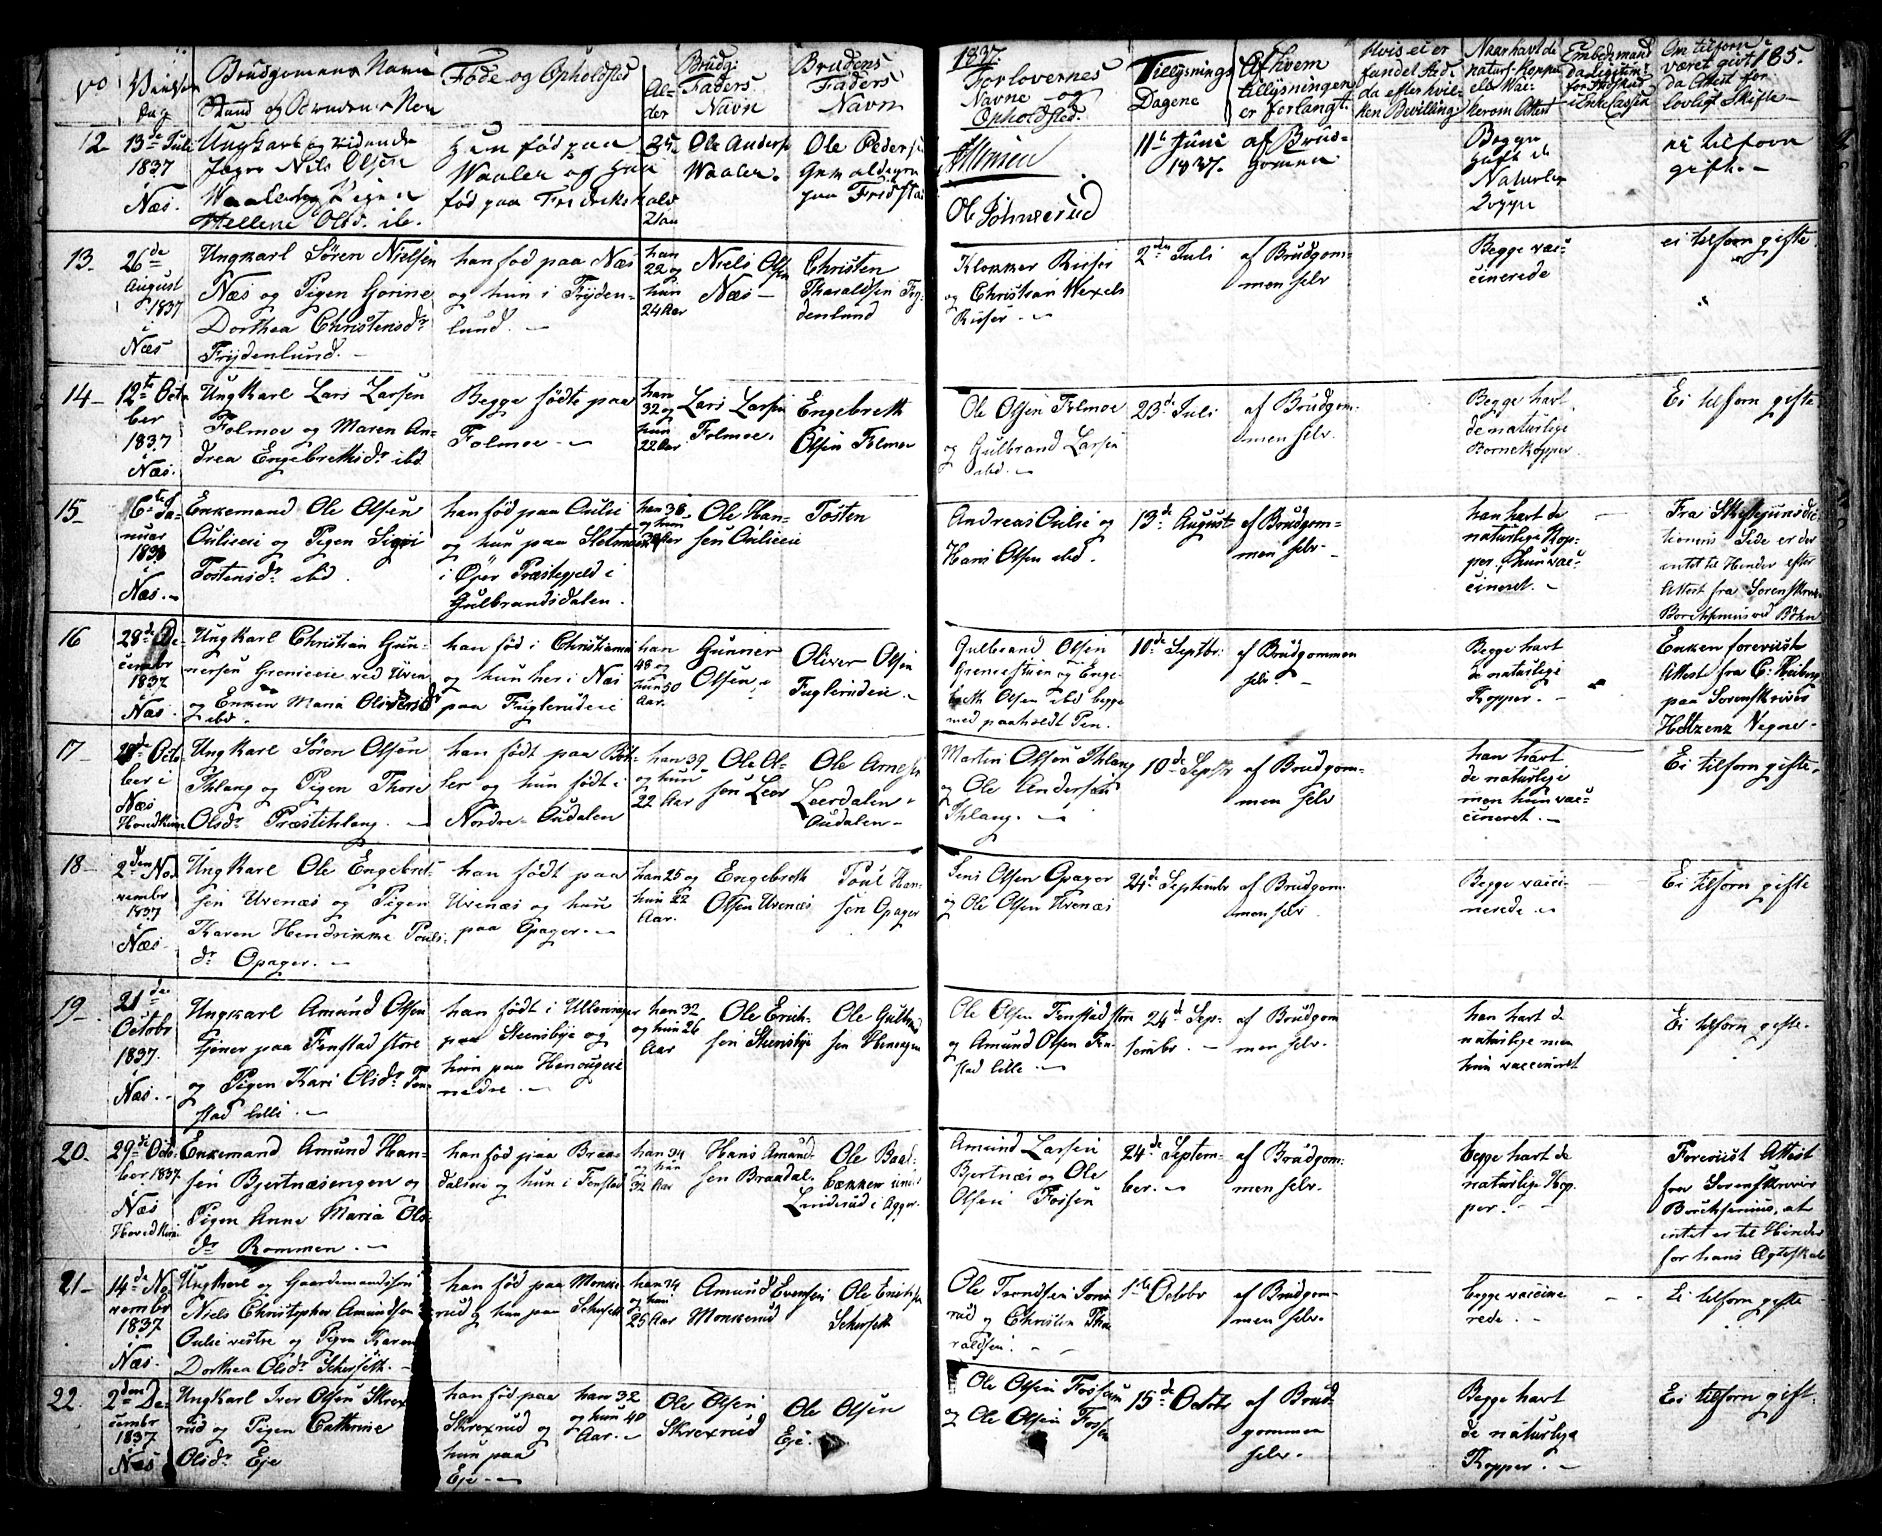 No
Vielses
Dag
Brudgomens Navn
Stand og Brudens Navn
Føde og Opholdsted
Al-
der
Brudg:
Faders
Navn
Brudens
Faders
Navn
1837.
Forlovernes
Navne og
Opholdsted.
Tillysnings
Dagene
Af hvem
tillysningen
er forlangt.
Hvis ei er
fundet sted,
da efter hvil-
ken Bevilling
Naar havt de
naturl. Kopper
els Vac-
185.
12
13de Juli
1837
i
Næs.
Ungkarl
Nils Olsen
Waaler og Pigen
Hellene Olsd. ib.
Han født paa
Waaler og hun
født paa Fredriks
hald
25
21 aar
Ole Anders
Waaler.
Ole Peders
paa Fridrsta
Ole Johnsrud
11te Juni
1837.
af Brud-
gomen
Begge
havt de
Naturlige
Kopper
ei tilforn
gifte. -
13.
26de
August
1837
i
Næs
Ungkarl Søren Nielsen
Næs og Pigen Gorine
Dorthea Christensdr
Frydenlund. -
han fød paa Næs
og hun i Fryden-
lund. -
han
22 og
hun
24 Aar
Niels Olsen
Næs -
Christen
Tharaldsen Fry-
denlund
Klokker Riiser
og Christian Wexels
Riiser. -
2den Juli
af Brudgom-
men selv
Begge vac-
cinerede
ei tilforn gifte
14 -
12te Octo
ber
1837
i
Næs.
Ungkarl Lars Larsen
Folmoe og Maren An-
drea Engebrethsdr ibd
Begge fødte paa
Folmoe. -
han
32 og
hun
22 Aar
Lars Larsen
Folmoe.
Engebreth
Olsen Folmoe
Ole Olsen Folmoe
og Gulbrand Larsen
ibd. -
23de Juli
af Brudgom-
men selv.
Begge havt
de naturlige
Børnekopper
Ei tilforn gifte
15 -
6te Ja-
nuar
1838
i
Næs. -
Enkemand Ole Olsen
Aulieeie og Pigen Sigri
Tostensdr ibd.
han fød paa Aulie
og hun paa
i Øier Præstegjeld i
Gulbrandsdalen.
han 38
og hun
Aar
Ole Han-
sen Aulieeie
Tosten
Andreas Aulie og
Hans Olsen ibd.
13de August
af Brudgom-
men selv -
han havt de
naturlige Kop-
per, hun vac-
cineret. -
Fra Skifejurisdic-
tionens Side er der
intet til Hinder efter
Attest fra Sorenskriver
Borchsenius ved Bohn
16
28de De-
cembr
1837
i
Næs.
Ungkarl Christian Gun-
nersen Grenieeie ved Üren
og Enken Maria Oliversdr
ibd.
han fød i Christiania
og hun her i Næs
paa Fuglerudeie
han
48 og
hun 50
Aar.
Gunner
Olsen
Oliver Olsen
Fuglerudeie. -
Gulbrand Olsen
og Enge-
breth Olsen ibd begge
med paaholdt Pen.
10de Septbr.
af Brudgommen
selv. -
Begge havt
de naturlige
Kopper. -
Enken foreviist
Attest fra C: Heiberg
paa Sorenskriver
Heltzens Vegne -
17 -
Octo-
ber i
Næs
Hovedkirke
Ungkarl Søren Olsen
Ihlang og Pigen Thore
Olsdr Præstihlang. -
han født paa Böh-
ler og hun født i
Nordre - Audalen
han 39
og hun
22 Aar
Ole Ol-
sen Leer
Ole Arnesen
Leerdalen i
Audalen -
Martin Olsen Ihlang
og Ole Andersen
Ihlang. -
10de Septbr
af Brudgom-
men selv
han havt
de naturlige
men hun vac-
cineret. -
Ei tilforn gifte.
18 -
2den No-
vembr
1837
i
Næs
Ungkarl Ole Engebret-
sen Urenæs og Pigen
Karen Hendrikke Pouls-
dr Opager. -
han født paa
Urenæs og hun
paa Opager. -
han 25 og
hun 22
Aar.
Engebreth
Olsen Urenæs
Poul Han-
sen Opager
Jens Olsen Opager
og Ole Olsen Urenæs
24de Septembr
af Brudgom-
men selv.
Begge vacci-
nerede. -
Ei tilforn gifte
19 -
21de
Octobr
1837.
i
Næs. -
Ungkarl Amund Olsen
tjener paa Fenstad store
og Pigen Kari Olsdr Fen-
stad lille. -
han født i Ullensager
paa Steensbye og
hun paa Henougeie
nedre. -
han 32
og hun 26
Aar
Ole Erich-
sen Stensbye
Ole Gulbrand
sen Henougen
Ole Olsen Fenstad store
og Amund Olsen Fen-
stad lille. -
24de Sep-
tembr. -
af Brudgom
men selv.
han havt de
naturlige men
hun vaccineret
Ei tilforn gifte.
20.
29de Octo-
ber 1837.
i
Næs
Hovedkirke
Enkemand Amund Han-
sen Bjertnæsengen og
Pigen Anne Maria Ols-
dr Rommen. -
han fød paa Braa-
dalseie og hun i Fenstad
han 34
og hun
32 Aar
Hans Amund-
sen Braadal.
Ole Baad-
bækken under
Linderud i Agger.
Amund Larsen
Bjertnæs og Ole
Olsen Fossen
24de Septem-
ber. -
af Brudgom-
men selv.
begge havt de
naturlige Kop
per. -
Foreviist Attest
fra Sorenskriver
Borchsenius, at
intet er til Hinder
for hans Ægteskab
21 -
14de No-
vembr
1837
i
Næs.
Ungkarl og Gaardemandssøn
Niels Christopher Amundsen
Aulie vestre og Pigen Karen
Dorthea Olsdr Scherseth. -
han fød paa Monke-
rud og hun paa Scherseth
han 24
og hun
25 Aar
Amund Evensen
Monkerud
Ole Erichsen
Scherseth
Ole Trondsen
rud og Christen Tha-
raldsen. -
1ste Octobr
af Brudgom-
men selv.
begge vaccine
rede. -
Ei tilforn gifte -
22.
2den De-
cembr
1837
i
Næs
Ungkarl Iver Olsen Skrex
rud og Pigen Cathrine
Olsdr Eje
han fød paa
Skrexrud og
hun paa
Eje. -
han 32
og hun 40
Aar. -
Ole Olsen
Skrexrud
Ole Olsen
Eje.
Ole Olsen Fossen
og Ole Olsen Fossen
15de Octobr
af Brud
gommen
selv.
Begge havt
de naturlige
Kopper. -
Ei tilforn gift.